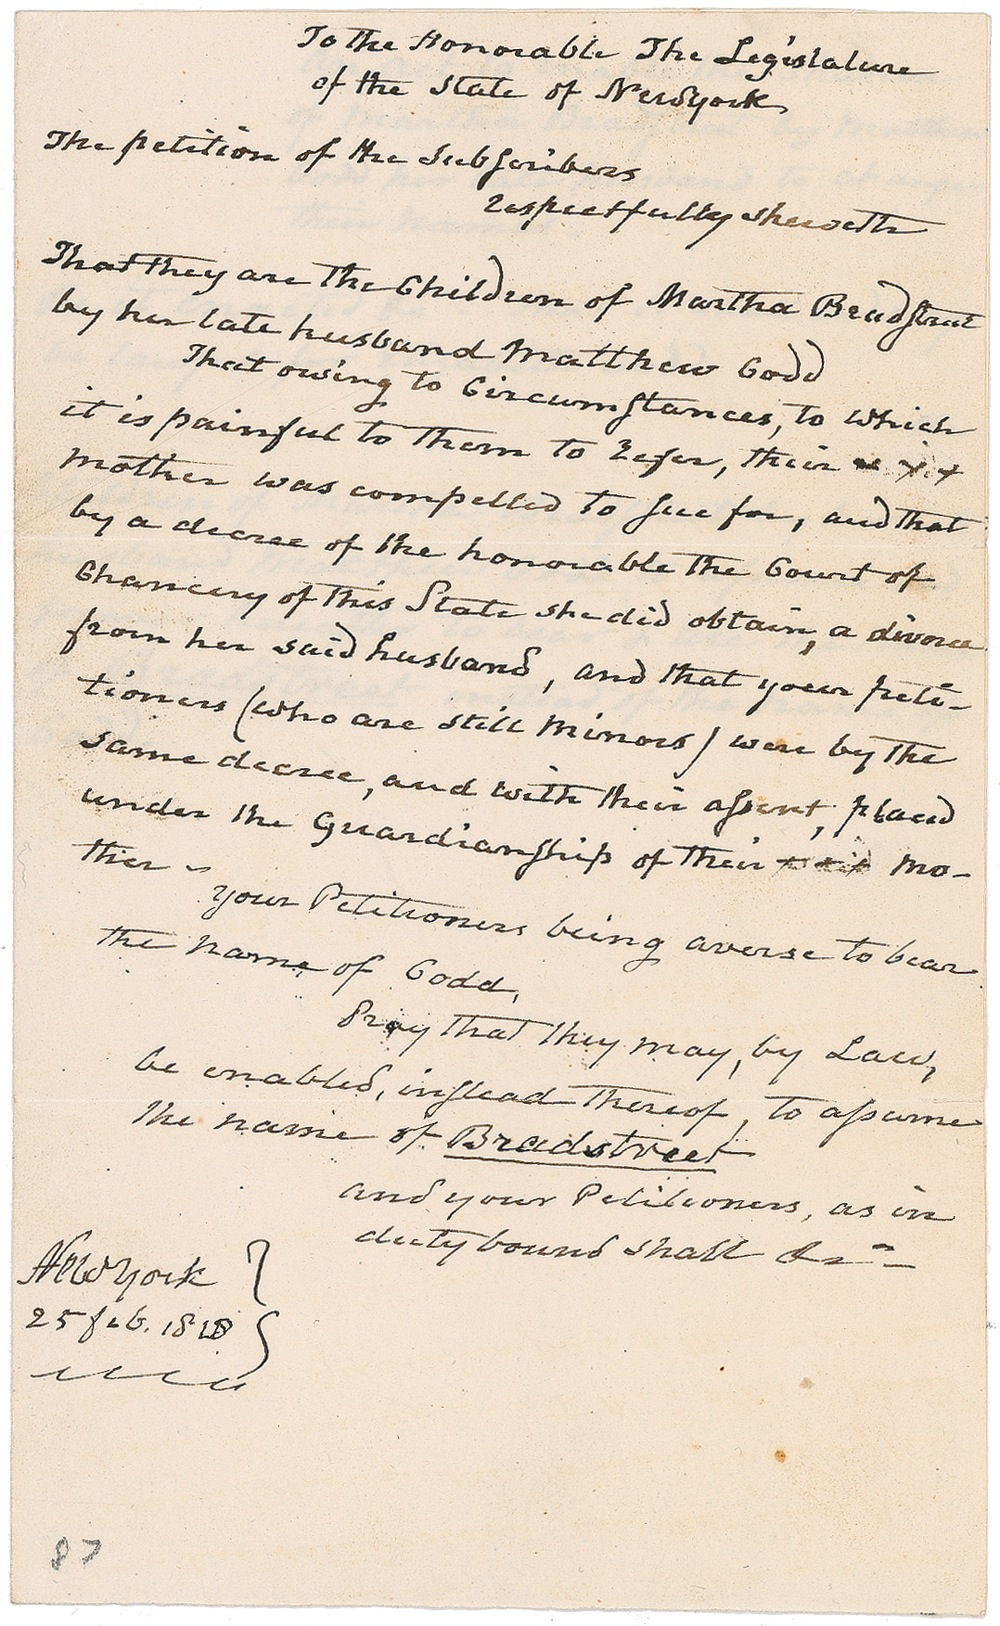 To the Honorable The Legislature
of the State of Newyork
The petition of the Subscribers
respectfully sheweth
That they are the Children of Martha Bradstreet
by her late husband Matthew Codd
That owing to Circumstances, to which
it is painful to them to refer, their
mother was compelled to sue for, and that
by a decree of the honorable the Court of
Chancery of this State she did obtain, a divorce
from her said husband, and that your peti-
tioners (who are still Minors) were by the
same decree, and with their assent, placed
under the Guardianship of their mo-
ther ~
your Petitioners being averse to bear
the name of Codd,
Pray that they may, by Law,
be enabled, instead thereof, to assume
the name of Bradstreet
and your Petitioners, as in
duty bound shall &c
Newyork
25 feb. 1818
87